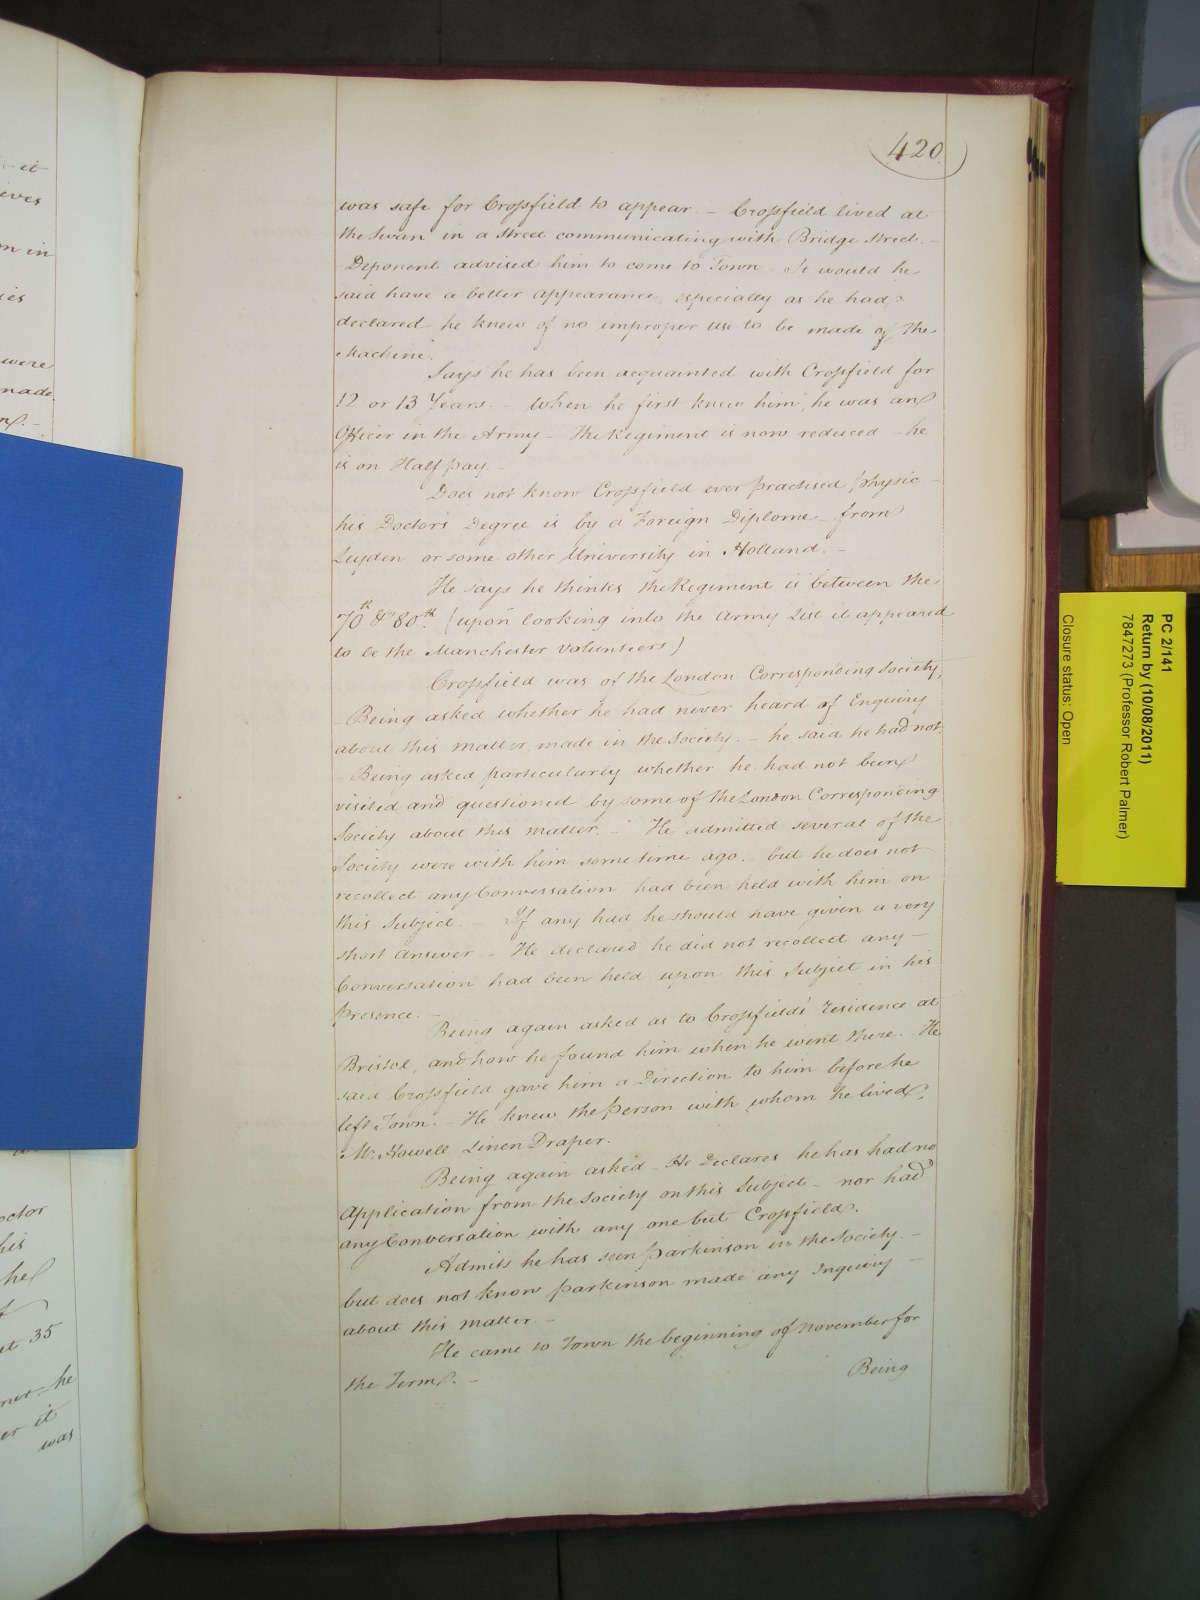 420
was safe for Crossfield to appear. – Crossfield lived at
the Swan in a Street communicating with Bridge Street. –
– Deponent advised him to come to Town – It would he
said have a better appearance, especially as he had
declared he knew of no improper use to be made of the
Machine.
Says he has been acquainted with Crossfield for
12 or 13 Years. – When he first knew him, he was an
Officer in the Army – The Regiment is now reduced – he
is on Half pay. –
Does not know Crossfield ever practised physic –
his Doctor's Degree is by a Foreign Diploma – from
Leyden or some other University in Holland. –
He says he thinks the Regiment is between the
70th & 80th (upon looking into the Army List it appeared
to be the Manchester Volunteers)
Crossfield was of the London Corresponding Society,
– Being asked whether he had never heard of Enquiry
about this matter made in the Society. – he said he had not.
– Being asked particularly whether he had not been
visited and questioned by some of the London Corresponding
Society about this matter. – He admitted several of the
Society were with him some time ago. but he does not
recollect any Conversation had been held with him on
this Subject. – If any had he should have given a very
short answer. – He declared he did not recollect any –
Conversation had been held upon this Subject in his
presence. –
Being again asked as to Crossfields' residence at
Bristol, and how he found him when he went there. He
said Crossfield gave him a Direction to him before he
left Town. – He knew the person with whom he lived,
Mr. Howell Linen Draper.
Being again asked – He Declares he has had no
Application from the Society on this Subject – nor had
any Conversation with any one but Crossfield.
Admits he has seen parkinson in the Society –
but does not know parkinson made any Inquiry –
about this matter. –
He came to Town the beginning of November for
the Term. –
Being
PC 2/141
Return by (10/08/2011)
7847273 (Professor Robert Palmer)
Closure status: Open
it
were
made
35
he
it
was